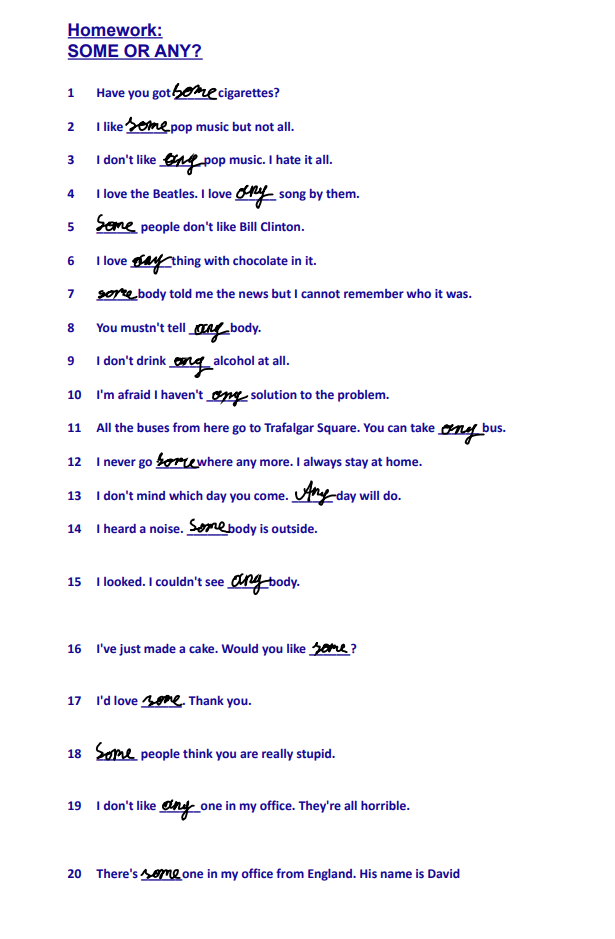 Homework:
SOME OR ANY?
1 Have you got some cigarettes?
2 I like some pop music but not all.
3 I don't like any pop music. I hate it all.
4 I love the Beatles. I love any song by them.
5 Some people don't like Bill Clinton.
6 I love any thing with chocolate in it.
7 some body told me the news but I cannot remember who it was.
8 You mustn't tell any body.
9 I don't drink any alcohol at all.
10 I'm afraid I haven't any solution to the problem.
11 All the buses from here go to Trafalgar Square. You can take any bus.
12 I never go some where any more. I always stay at home.
13 I don't mind which day you come. Any day will do.
14 I heard a noise. Some body is outside.
15 I looked. I couldn't see any body.
16 I've just made a cake. Would you like some ?
17 I'd love some. Thank you.
18 Some people think you are really stupid.
19 I don't like any one in my office. They're all horrible.
20 There's some one in my office from England. His name is David